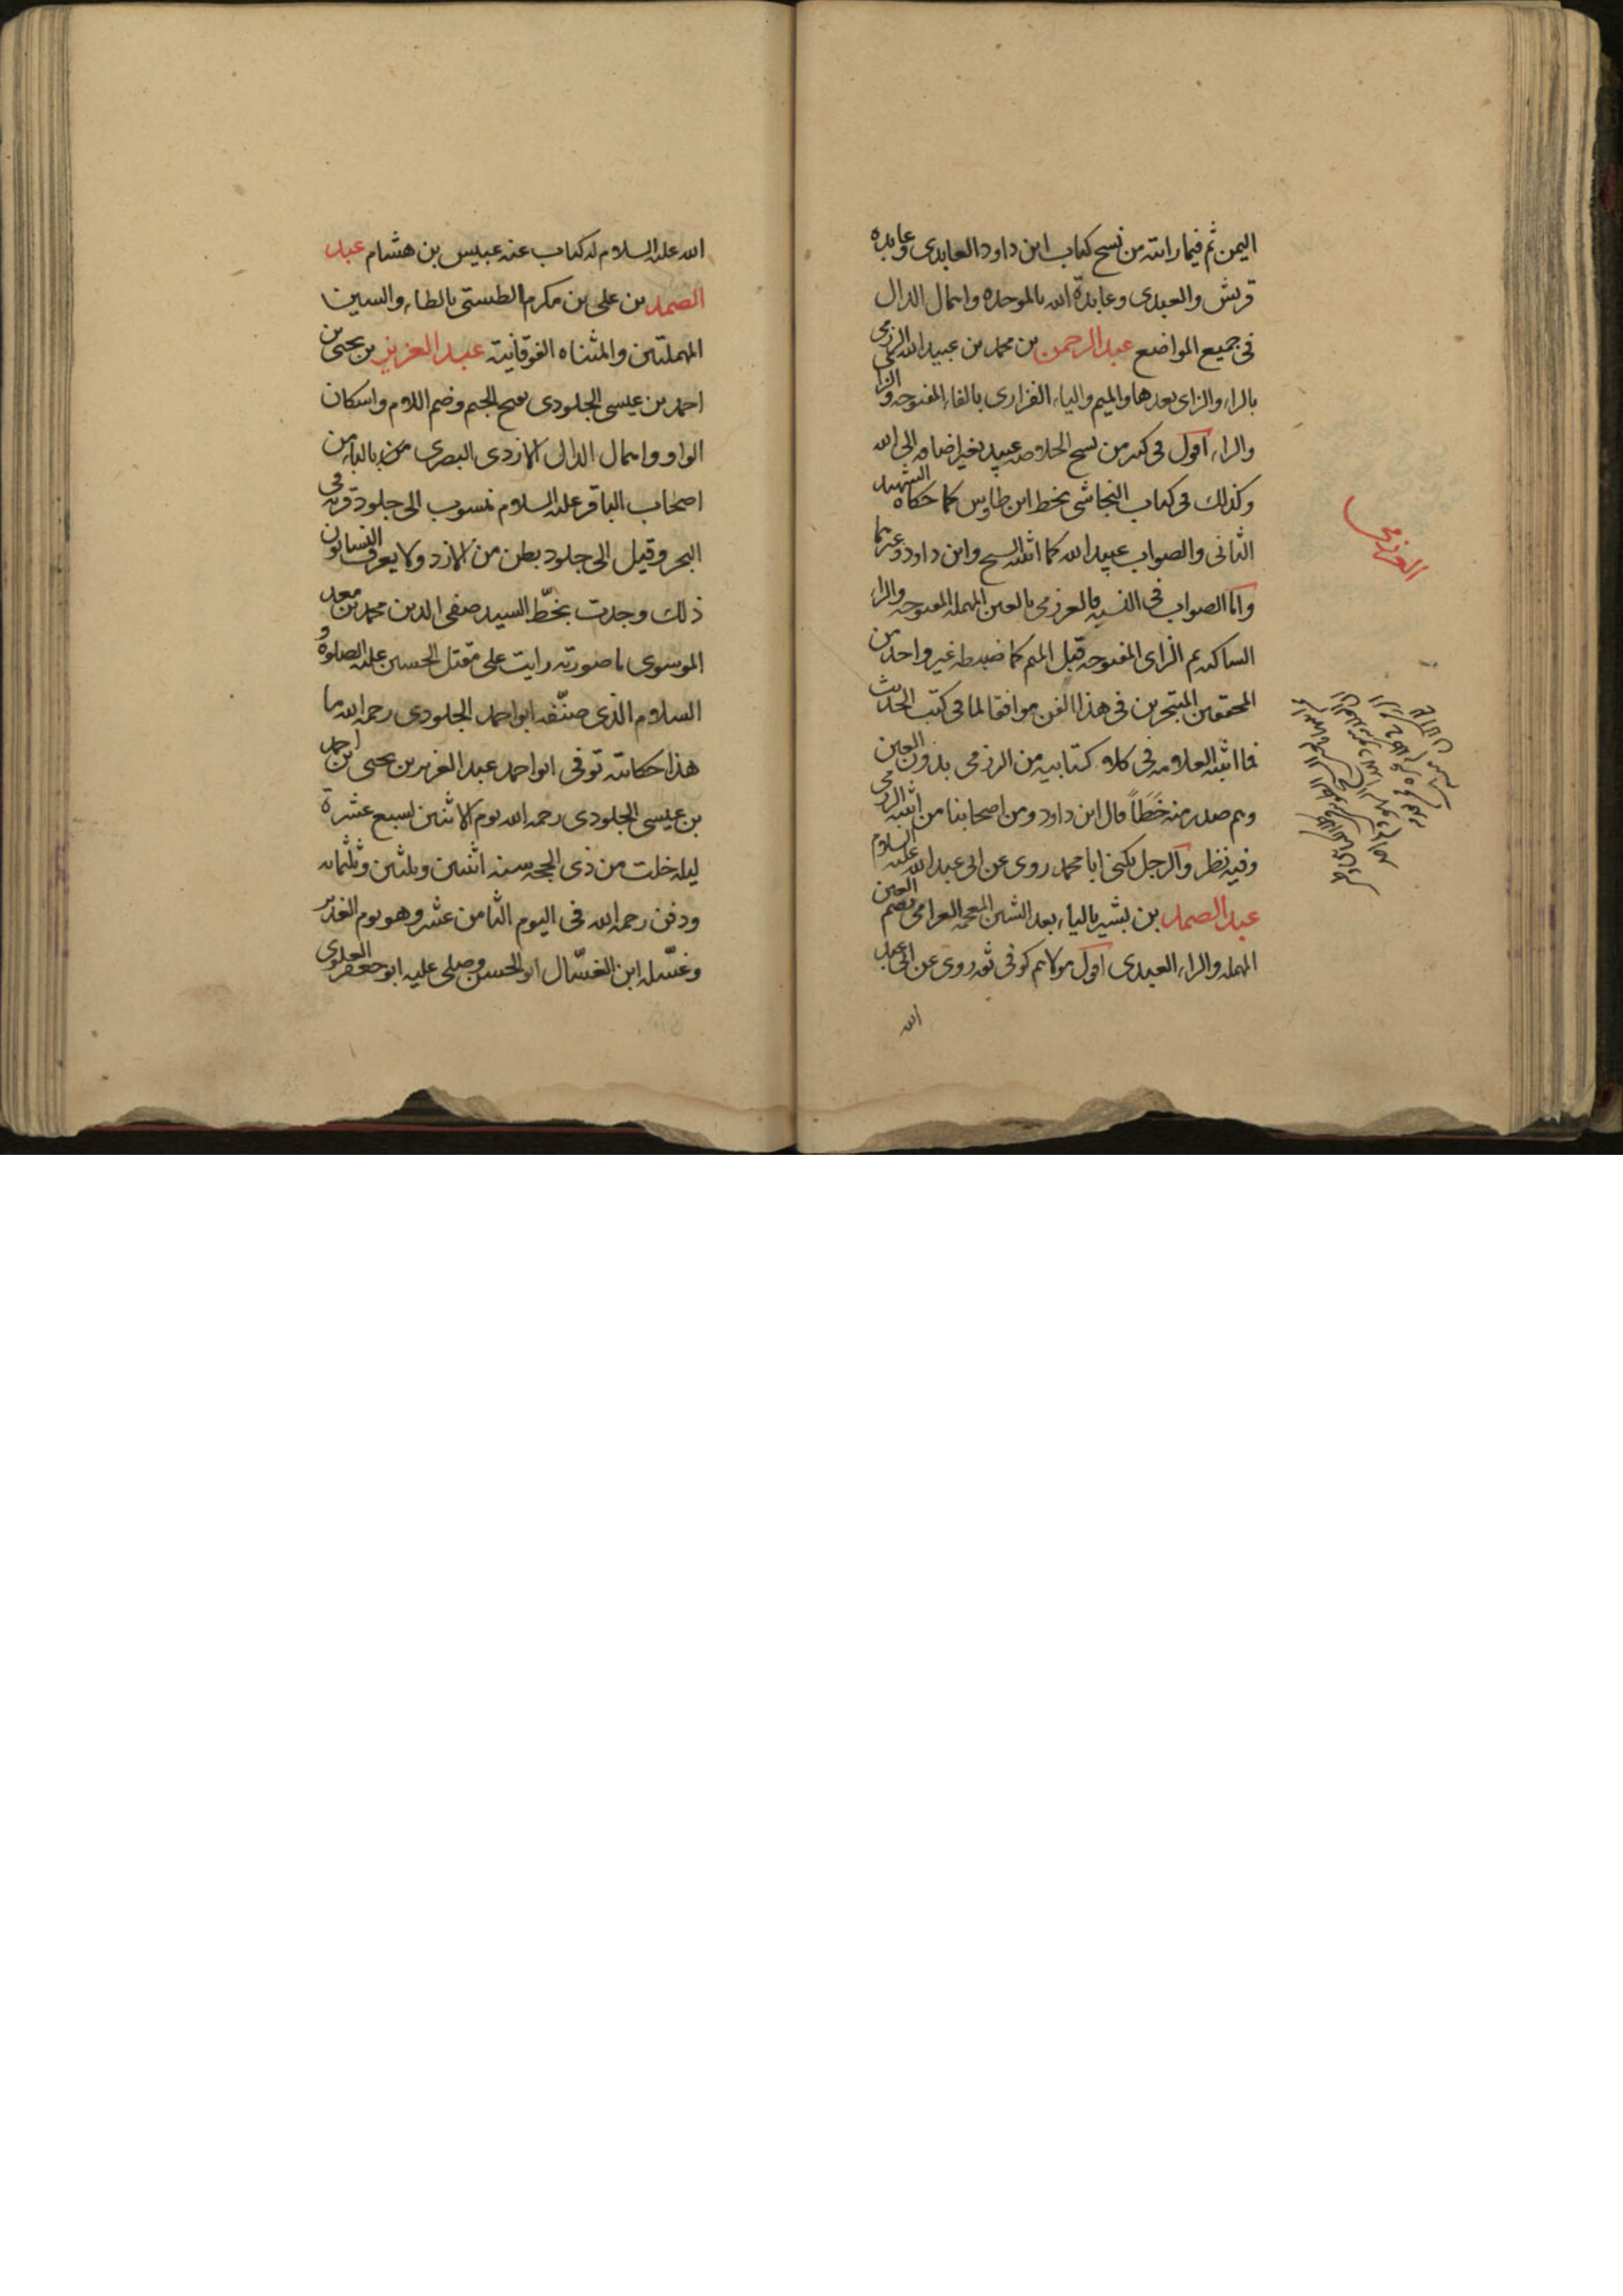 اليمن ثم فيما رايته من نسخ كتاب ابن داود العابدى وعابده
قريش والعبدى وعابدة الله بالموحده واهمال الدال
فى جميع المواضع عبد الرحمن بن محمد بن عبيد الله الرزمى
بالراء والزاى بعدها والميم والياء الفزارى بالفاء المفتوحه والزا
والراء اقول فى كثير من نسخ الخلاصه عبيد بغير اضافه الى الله
وكذلك فى كتاب النجاشى بخط ابن طاوس كما حكاه الشهيد
الثانى والصواب عبيد الله كما اثبته الشيخ وابن داود وغيرهما
واما الصواب فى النسبه فالعرزمى بالعين المهمله المفتوحه والراء
الساكنه ثم الزاى المفتوحه قبل الميم كما ضبطه غير واحد من
المحققين المتبحرين فى هذا الفن موافقا لما فى كتب الحديث
فما اثبته العلامه فى كلا كتابيه من الرزمى بدون العين
وهم صدر منه خطا قال ابن داود ومن اصحابنا من اثبته الرزمى
وفيه نظر والرجل يكنى ابا محمد روى عن ابى عبد الله عليه السلام
عبد الصمد بن بشير بالياء بعد الشين المعجمه العرامى بضم العين
المهمله والراء العبدى اقول مولاهم كوفى ثقه روى عن ابى عبد
الله
العرزمى
الله عليه السلام له كتاب عنه عبيس بن هشام عبد
الصمد بن على بن مكرم الطستى بالطاء والسين
المهملتين والمثناه الفوقانيته عبد العزيز بن يحيى بن
احمد بن عيسى الجلودى بفتح الجيم وضم اللام واسكان
الواو واهمال الدال الازدى البصرى من
اصحاب الباقر عليه السلام منسوب الى جلود قريه فى
البحر وقيل الى جلود بطن من الازد ولا يعرف النسابون
ذلك وجدت بخط السيد صفى الدين محمد بن معد
الموسوى ما صورته رايت على مقتل الحسين عليه الصلوة و
السلام الذى صنفه ابو احمد الجلودى رحمه الله ما
هذا حكايته توفى ابو احمد عبد العزيز بن يحيى بن احمد
بن عيسى الجلودى رحمه الله يوم الاثنين لسبع عشرة
ليله خلت من ذى الحجه سنه اثنين وثلثين وثلثمائه
ودفن رحمه الله فى اليوم الثامن عشر وهو يوم الغدير
وغسله ابن الغسال ابو الحسن وصلى عليه ابو جعفر العلوى